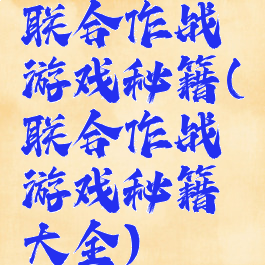 联合作战
游戏秘籍(
联合作战
游戏秘籍
大全)